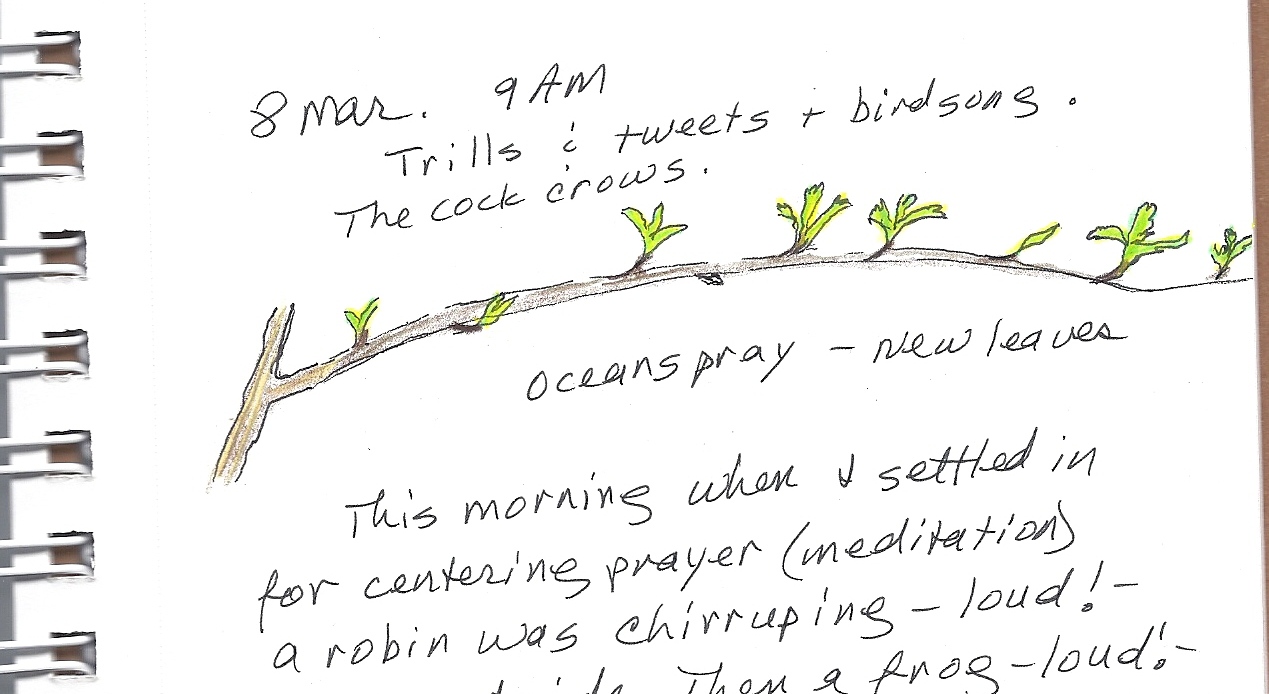 8 Mar. 9 AM
Trills & tweets + birdsong.
The cock crows.
oceanspray – new leaves
This morning when I settled in
for centering prayer (meditation)
a robin was chirruping – loud! –
Then a frog – loud! –